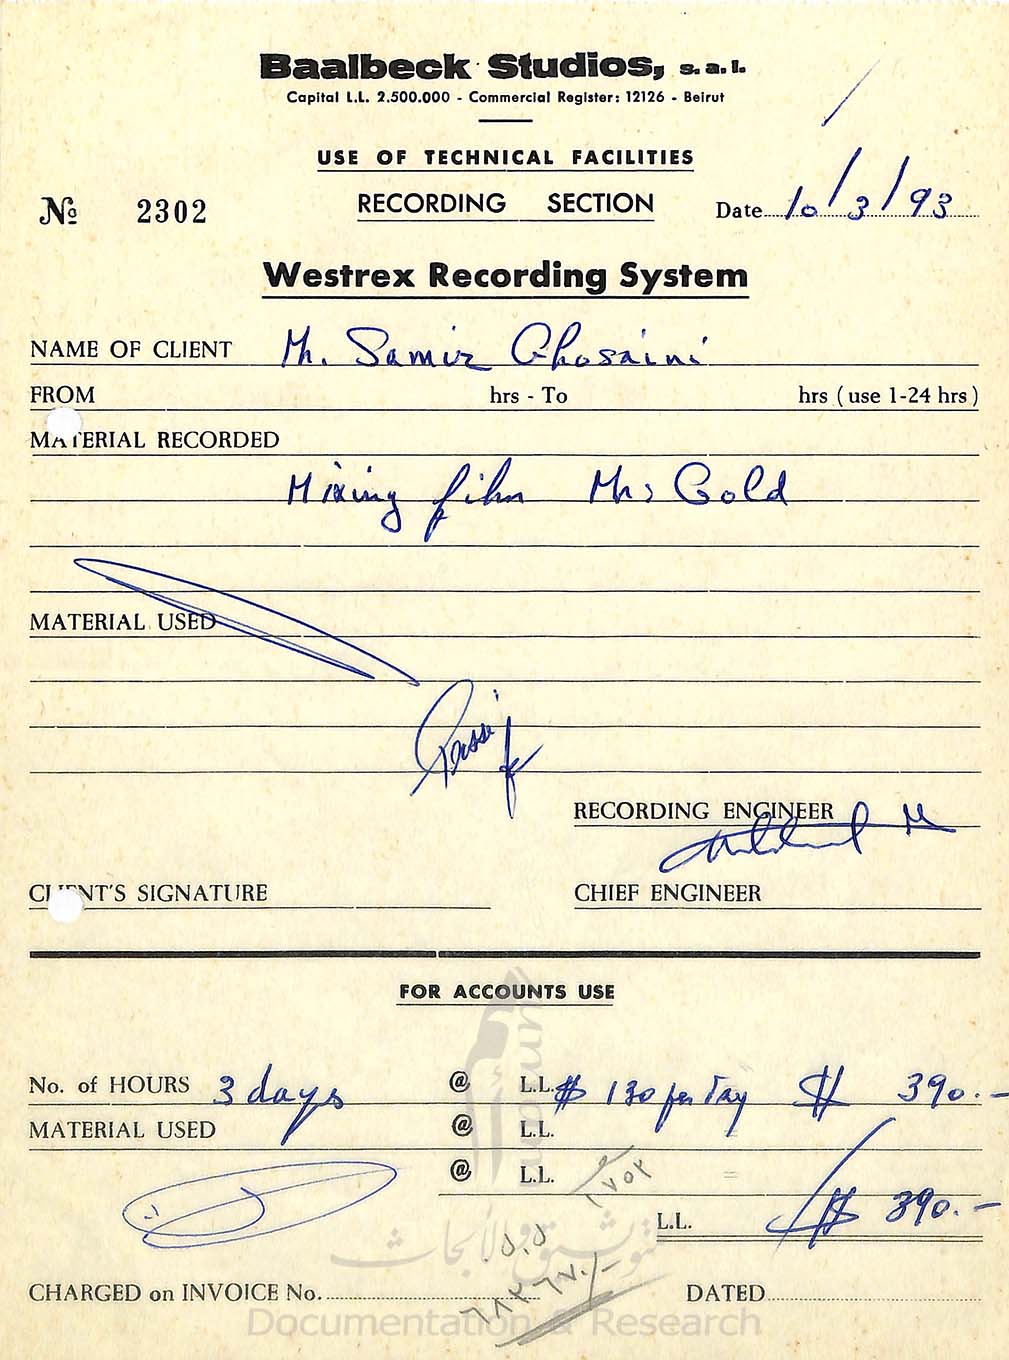 Baalbeck Studios, s.a.l.
Capital L.L. 2.500.000 - Commercial Register: 12126 - Beirut
USE OF TECHNICAL FACILITIES
No 2302 RECORDING SECTION Date 10/3/93
Westrex Recording System
NAME OF CLIENT Mr. Samir Ghosaini
FROM hrs - To hrs (use 1-24 hrs)
MATERIAL RECORDED
Mixing film Mrs Gold
MATERIAL USED
RECORDING ENGINEER
CLIENT'S SIGNATURE CHIEF ENGINEER
FOR ACCOUNTS USE
No. of HOURS 3 days @ L.L. $ 130 per Day $ 390.-
MATERIAL USED @ L.L.
@ L.L. =
١٧٥٣
L.L. $ 390.-
للتوثيق والأبحاث
ل.ل
CHARGED on INVOICE No. DATED
٦٨٣٦٧٠/-
Documentation & Research